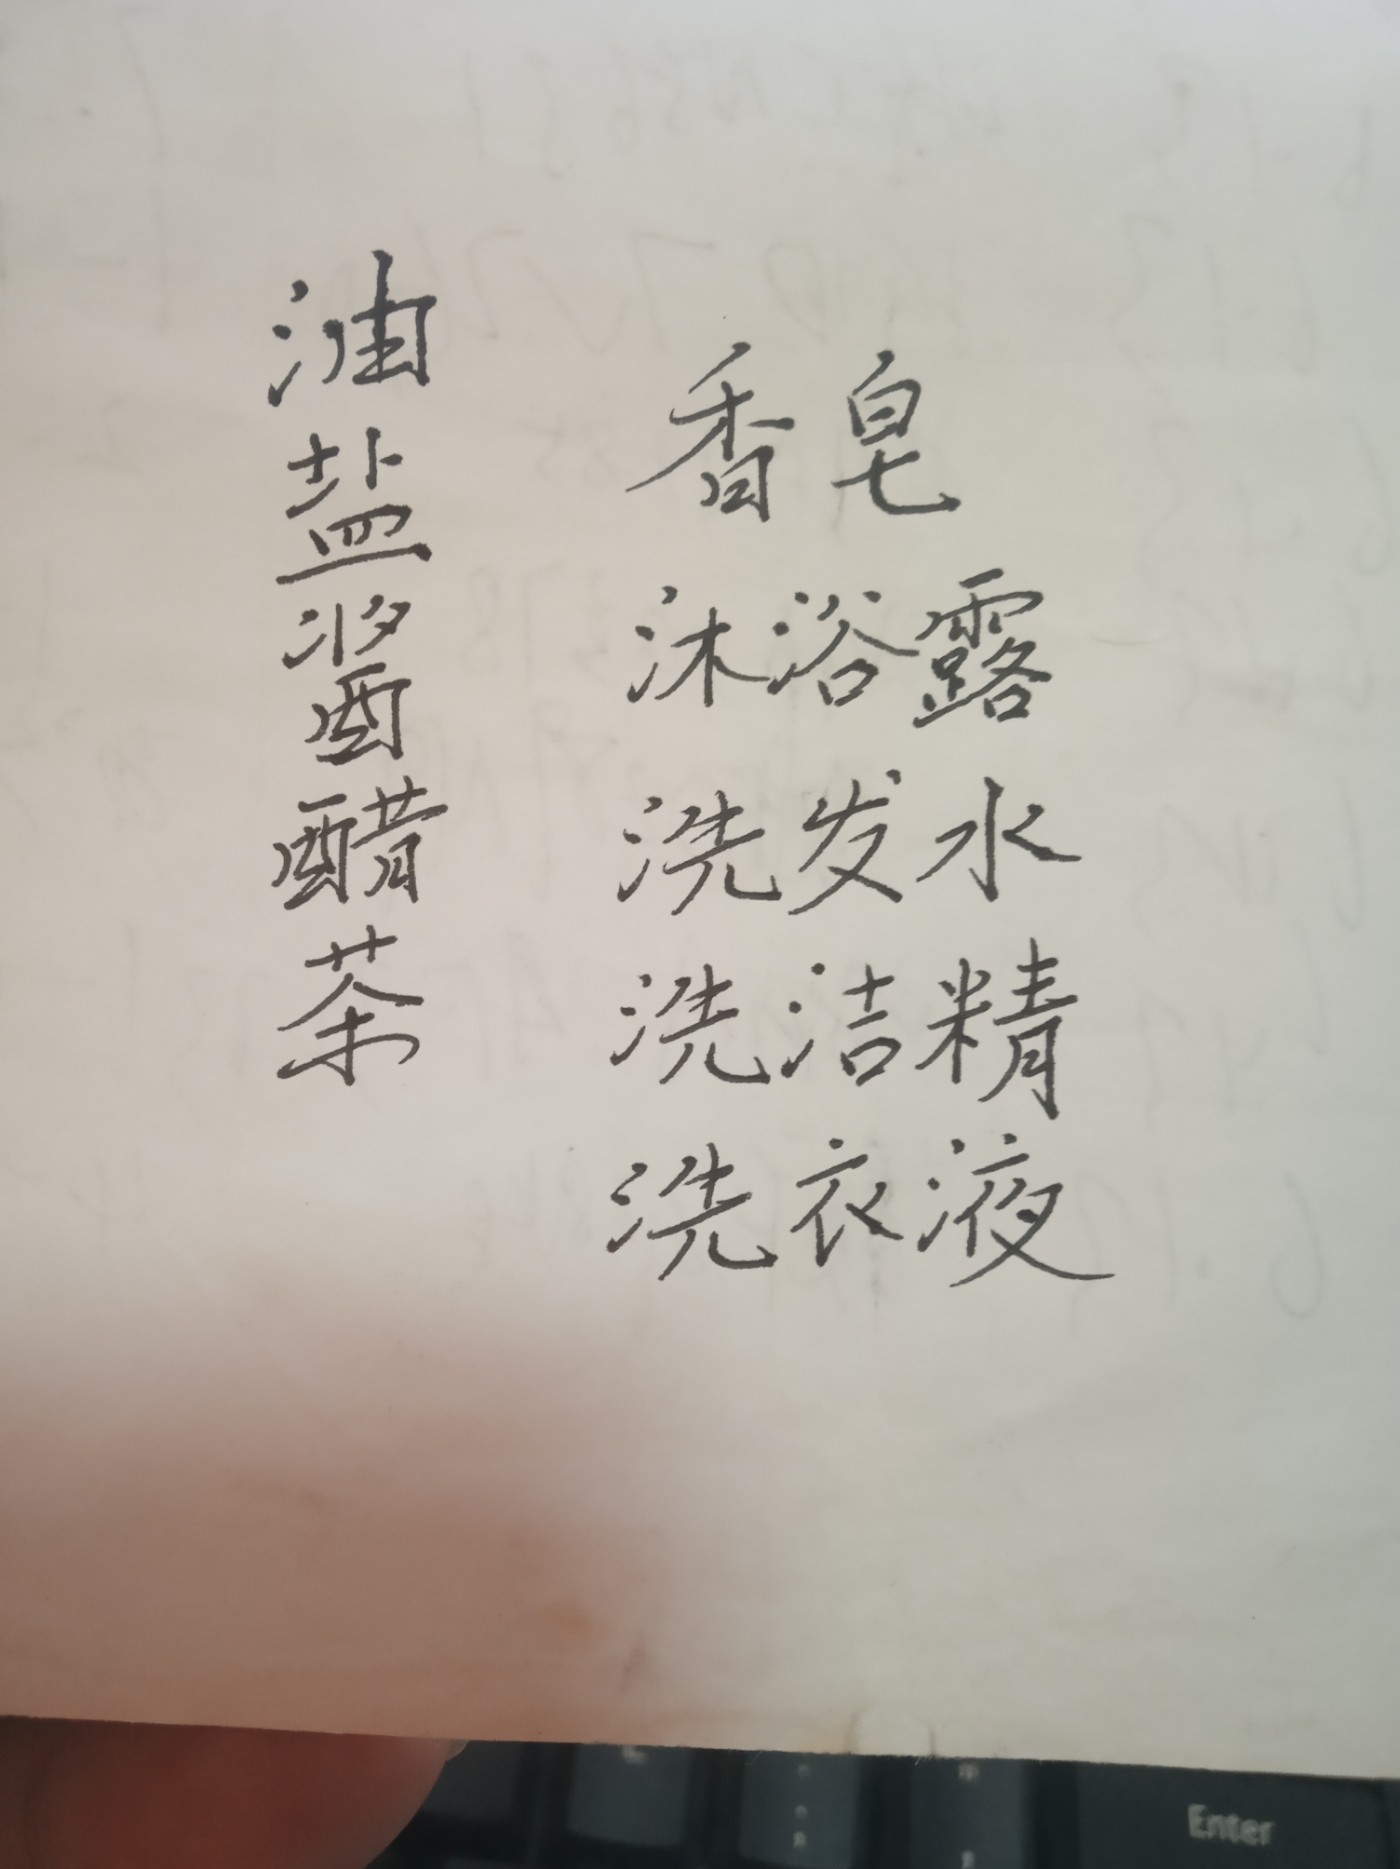 油盐酱醋茶
香皂
沐浴露
洗发水
洗洁精
洗衣液
Enter